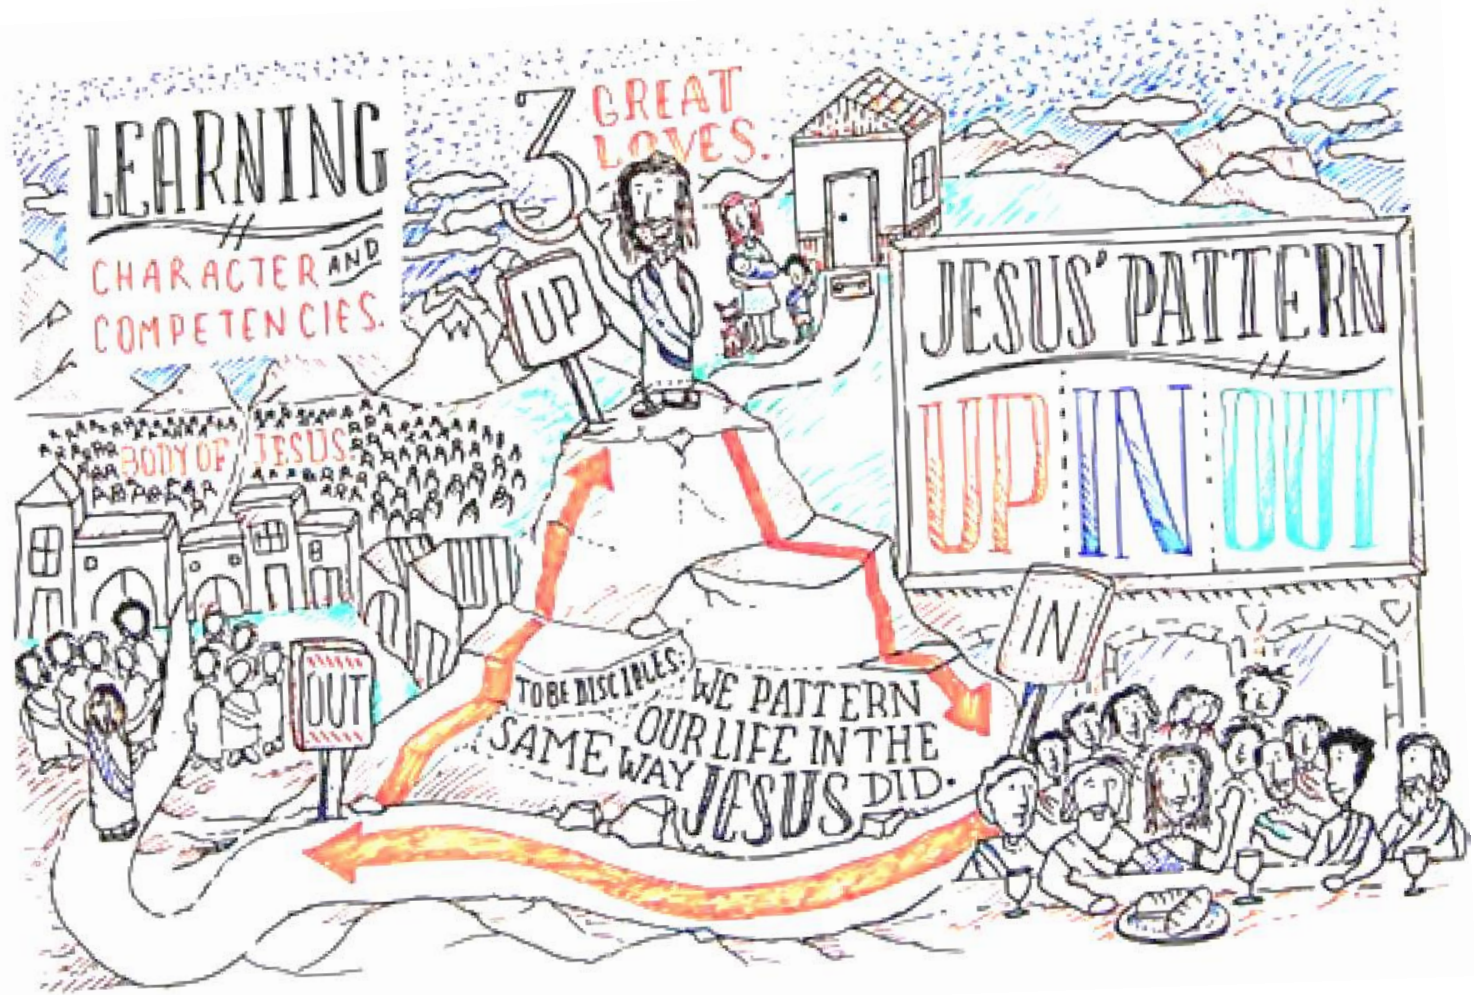 LEARNING
CHARACTER AND
COMPETENCIES.
3 GREAT
LOVES.
UP
JESUS' PATTERN
UP IN OUT
BODY OF JESUS
IN
OUT
TO BE DISCIPLES:
WE PATTERN
OUR LIFE IN THE
SAME WAY JESUS DID.